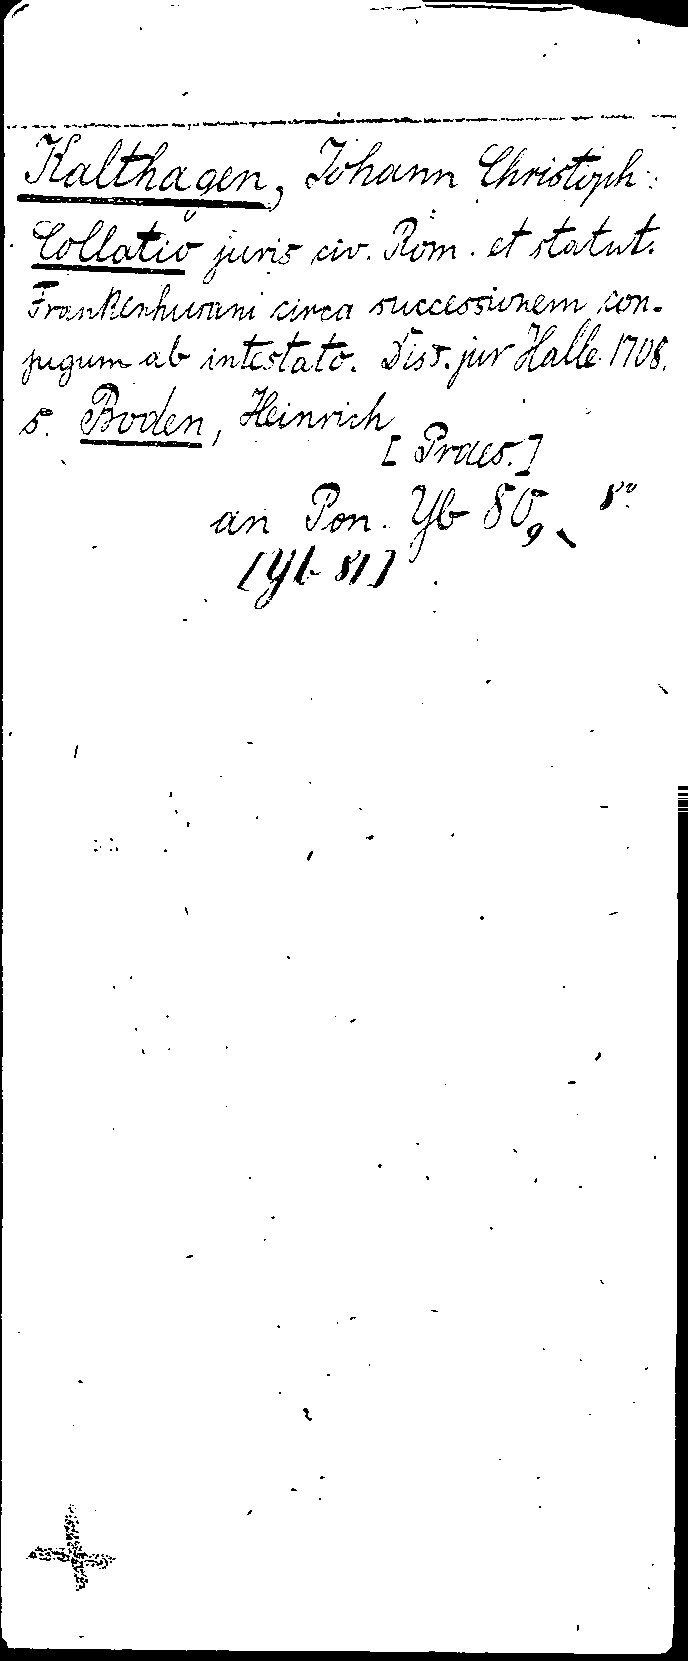 Kalthagen, Johann Christoph:
Collatio juris civ. Röm. et statut.
Frankenhusani circa successionem con-
jugum ab intestato. Diss. jur Halle 1708.
s. Boden, Heinrich
[Praes.]
an Pon. Yb 80, 8°
9
[Yb 81]